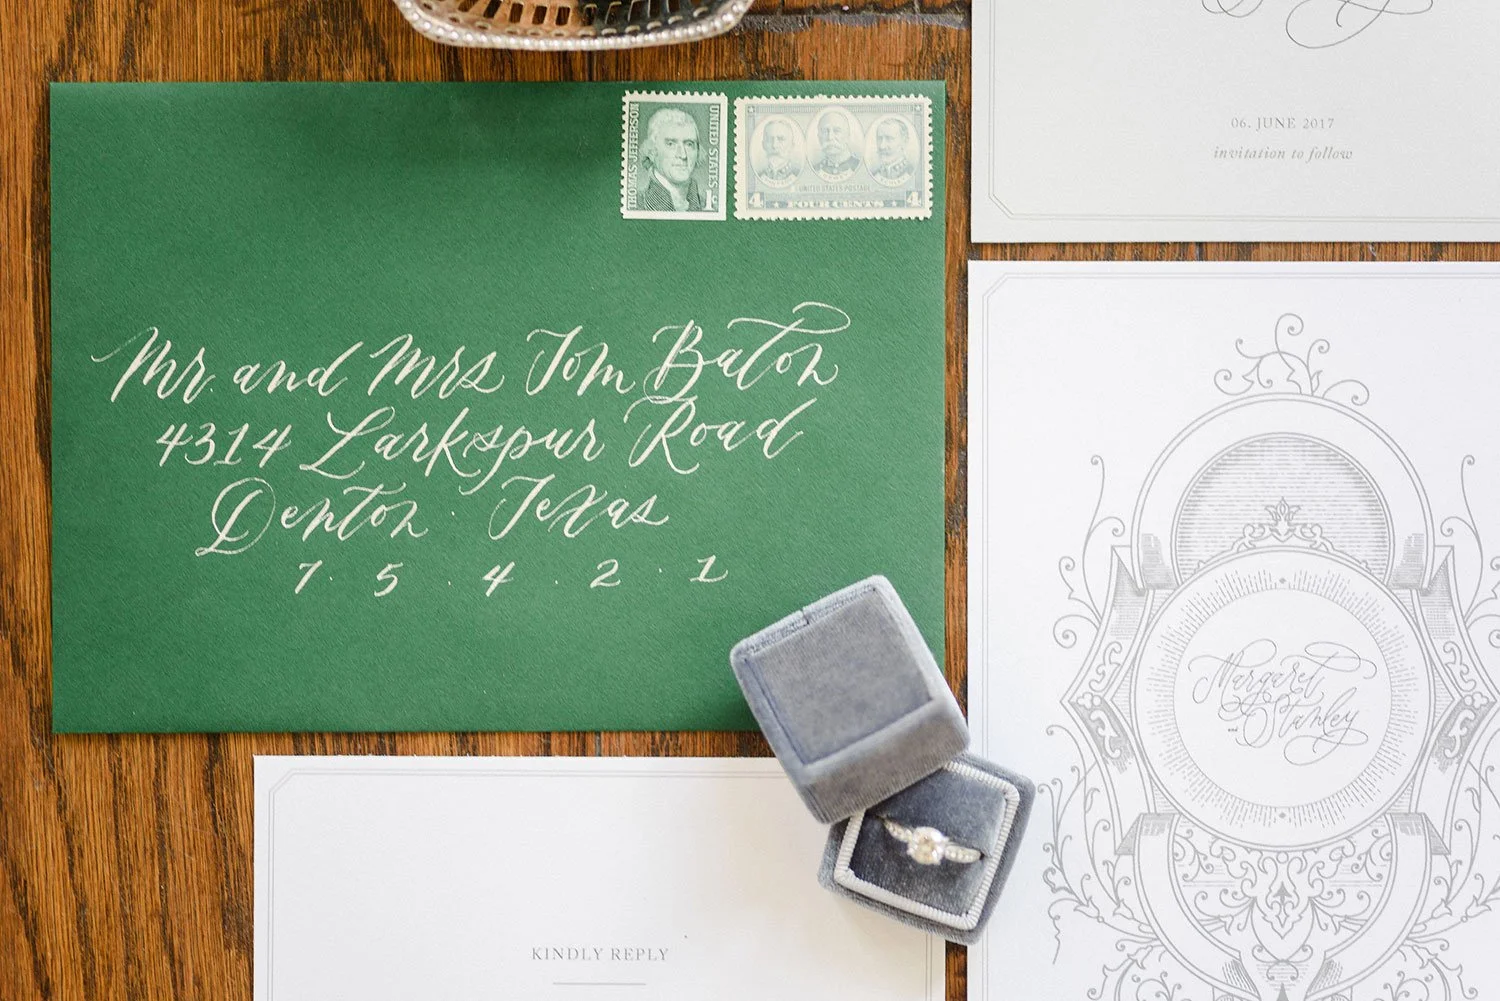 THOMAS JEFFERSON
UNITED STATES
1c
UNITED STATES POSTAGE
4 FOUR CENTS 4
Mr. and Mrs Tom Baton
4314 Larkspur Road
Denton. Texas
7. 5. 4. 2. 1
06. JUNE 2017
invitation to follow
Margaret
and Stanley
KINDLY REPLY